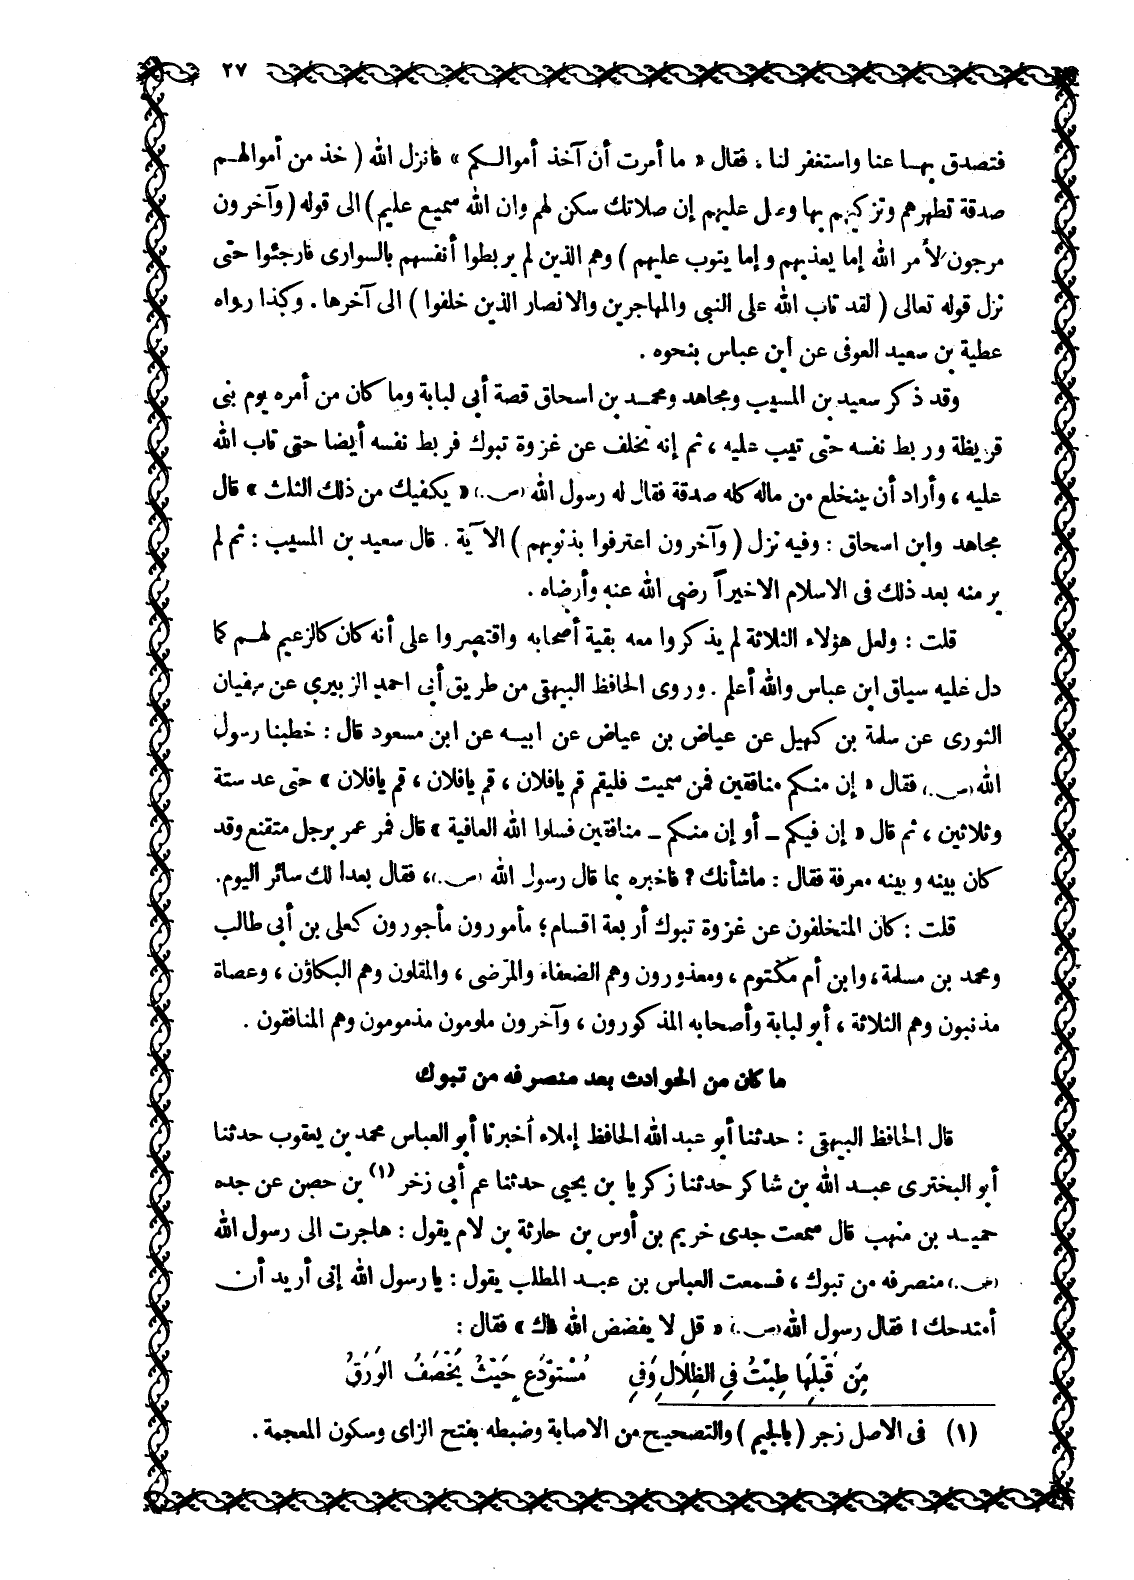 ٢٧
فتصدق بهـا عنا واستغفر لنا ، فقال « ما أمرت أن آخذ أموالـكم » فانزل الله ( خذ من أموالهـم
صدقة تطهرهم وتزكيهم بها وصل عليهم إن صلاتك سكن لهم وان الله سميع عليم ) الى قوله ( وآخرون
مرجون لأمر الله إما يعذبهم وإما يتوب عليهم ) وهم الذين لم يربطوا أنفسهم بالسوارى فارجئوا حتى
نزل قوله تعالى ( لقد تاب الله على النبى والمهاجرين والانصار الذين خلفوا ) الى آخرها . وكذا رواه
عطية بن سعيد العوفى عن ابن عباس بنحوه .
وقد ذكر سعيد بن المسيب ومجاهد ومحمـد بن اسحاق قصة أبى لبابة وما كان من أمره يوم بنى
قريظة وربط نفسه حتى تيب عليه ، ثم إنه تخلف عن غزوة تبوك فربط نفسه أيضا حتى تاب الله
عليه ، وأراد أن ينخلع من ماله كله صدقة فقال له رسول الله (ص.) « يكفيك من ذلك الثلث » قال
مجاهد وابن اسحاق : وفيه نزل ( وآخرون اعترفوا بذنوبهم ) الآية . قال سعيد بن المسيب : ثم لم
ير منه بعد ذلك فى الاسلام الاخيراً رضى الله عنه وأرضاه .
قلت : ولعل هؤلاء الثلاثة لم يذكروا معه بقية أصحابه واقتصروا على أنه كان كالزعيم لهـم كما
دل عليه سياق ابن عباس والله أعلم . وروى الحافظ البيهقى من طريق أبى احمد الزبيرى عن سفيان
الثورى عن سلمة بن كهيل عن عياض بن عياض عن ابيـه عن ابن مسعود قال : خطبنا رسول
الله (ص.) فقال « إن منـكم منافقين فمن سميت فليقم قم يافلان ، قم يافلان ، قم يافلان » حتى عد ستة
وثلاثين ، ثم قال « إن فيكم ــ أو إن منـكم ــ منافقين فسلوا الله العافية » قال فمر عمر برجل متقنع وقد
كان بينه وبينه معرفة فقال : ماشأنك ؟ فاخبره بما قال رسول الله (ص.)، فقال بعدا لك سائر اليوم.
قلت : كان المتخلفون عن غزوة تبوك أربعة اقسام؛ مأمورون مأجورون كعلى بن أبى طالب
ومحمد بن مسلمة، وابن أم مكتوم ، ومعذورون وهم الضعفاء والمرضى ، والمقلون وهم البكاؤن ، وعصاة
مذنبون وهم الثلاثة ، أبو لبابة وأصحابه المذكورون ، وآخرون ملومون مذمومون وهم المنافقون .
ما كان من الحوادث بعد منصرفه من تبوك
قال الحافظ البيهقى : حدثنا أبو عبد الله الحافظ إملاء أخبرنا أبو العباس محمد بن يعقوب حدثنا
أبو البخترى عبـد الله بن شاكر حدثنا زكريا بن يحيى حدثنا عم أبى زخر (١) بن حصن عن جده
حميـد بن منهب قال سمعت جدى خريم بن أوس بن حارثة بن لام يقول : هاجرت الى رسول الله
(ص.) منصرفه من تبوك ، فسمعت العباس بن عبـد المطلب يقول : يا رسول الله إنى أريد أن
أمتدحك ! فقال رسول الله (ص.) « قل لا يفضض الله فاك » فقال :
مِن قَبْلِهَا طِبْتُ فِي الظِلَالِ وَفِي مُسْتَوْدَعٍ حَيْثُ يُخْصَفُ الوَرَقُ
(١) فى الاصل زجر ( بالجيم ) والتصحيح من الاصابة وضبطه بفتح الزاى وسكون المعجمة .